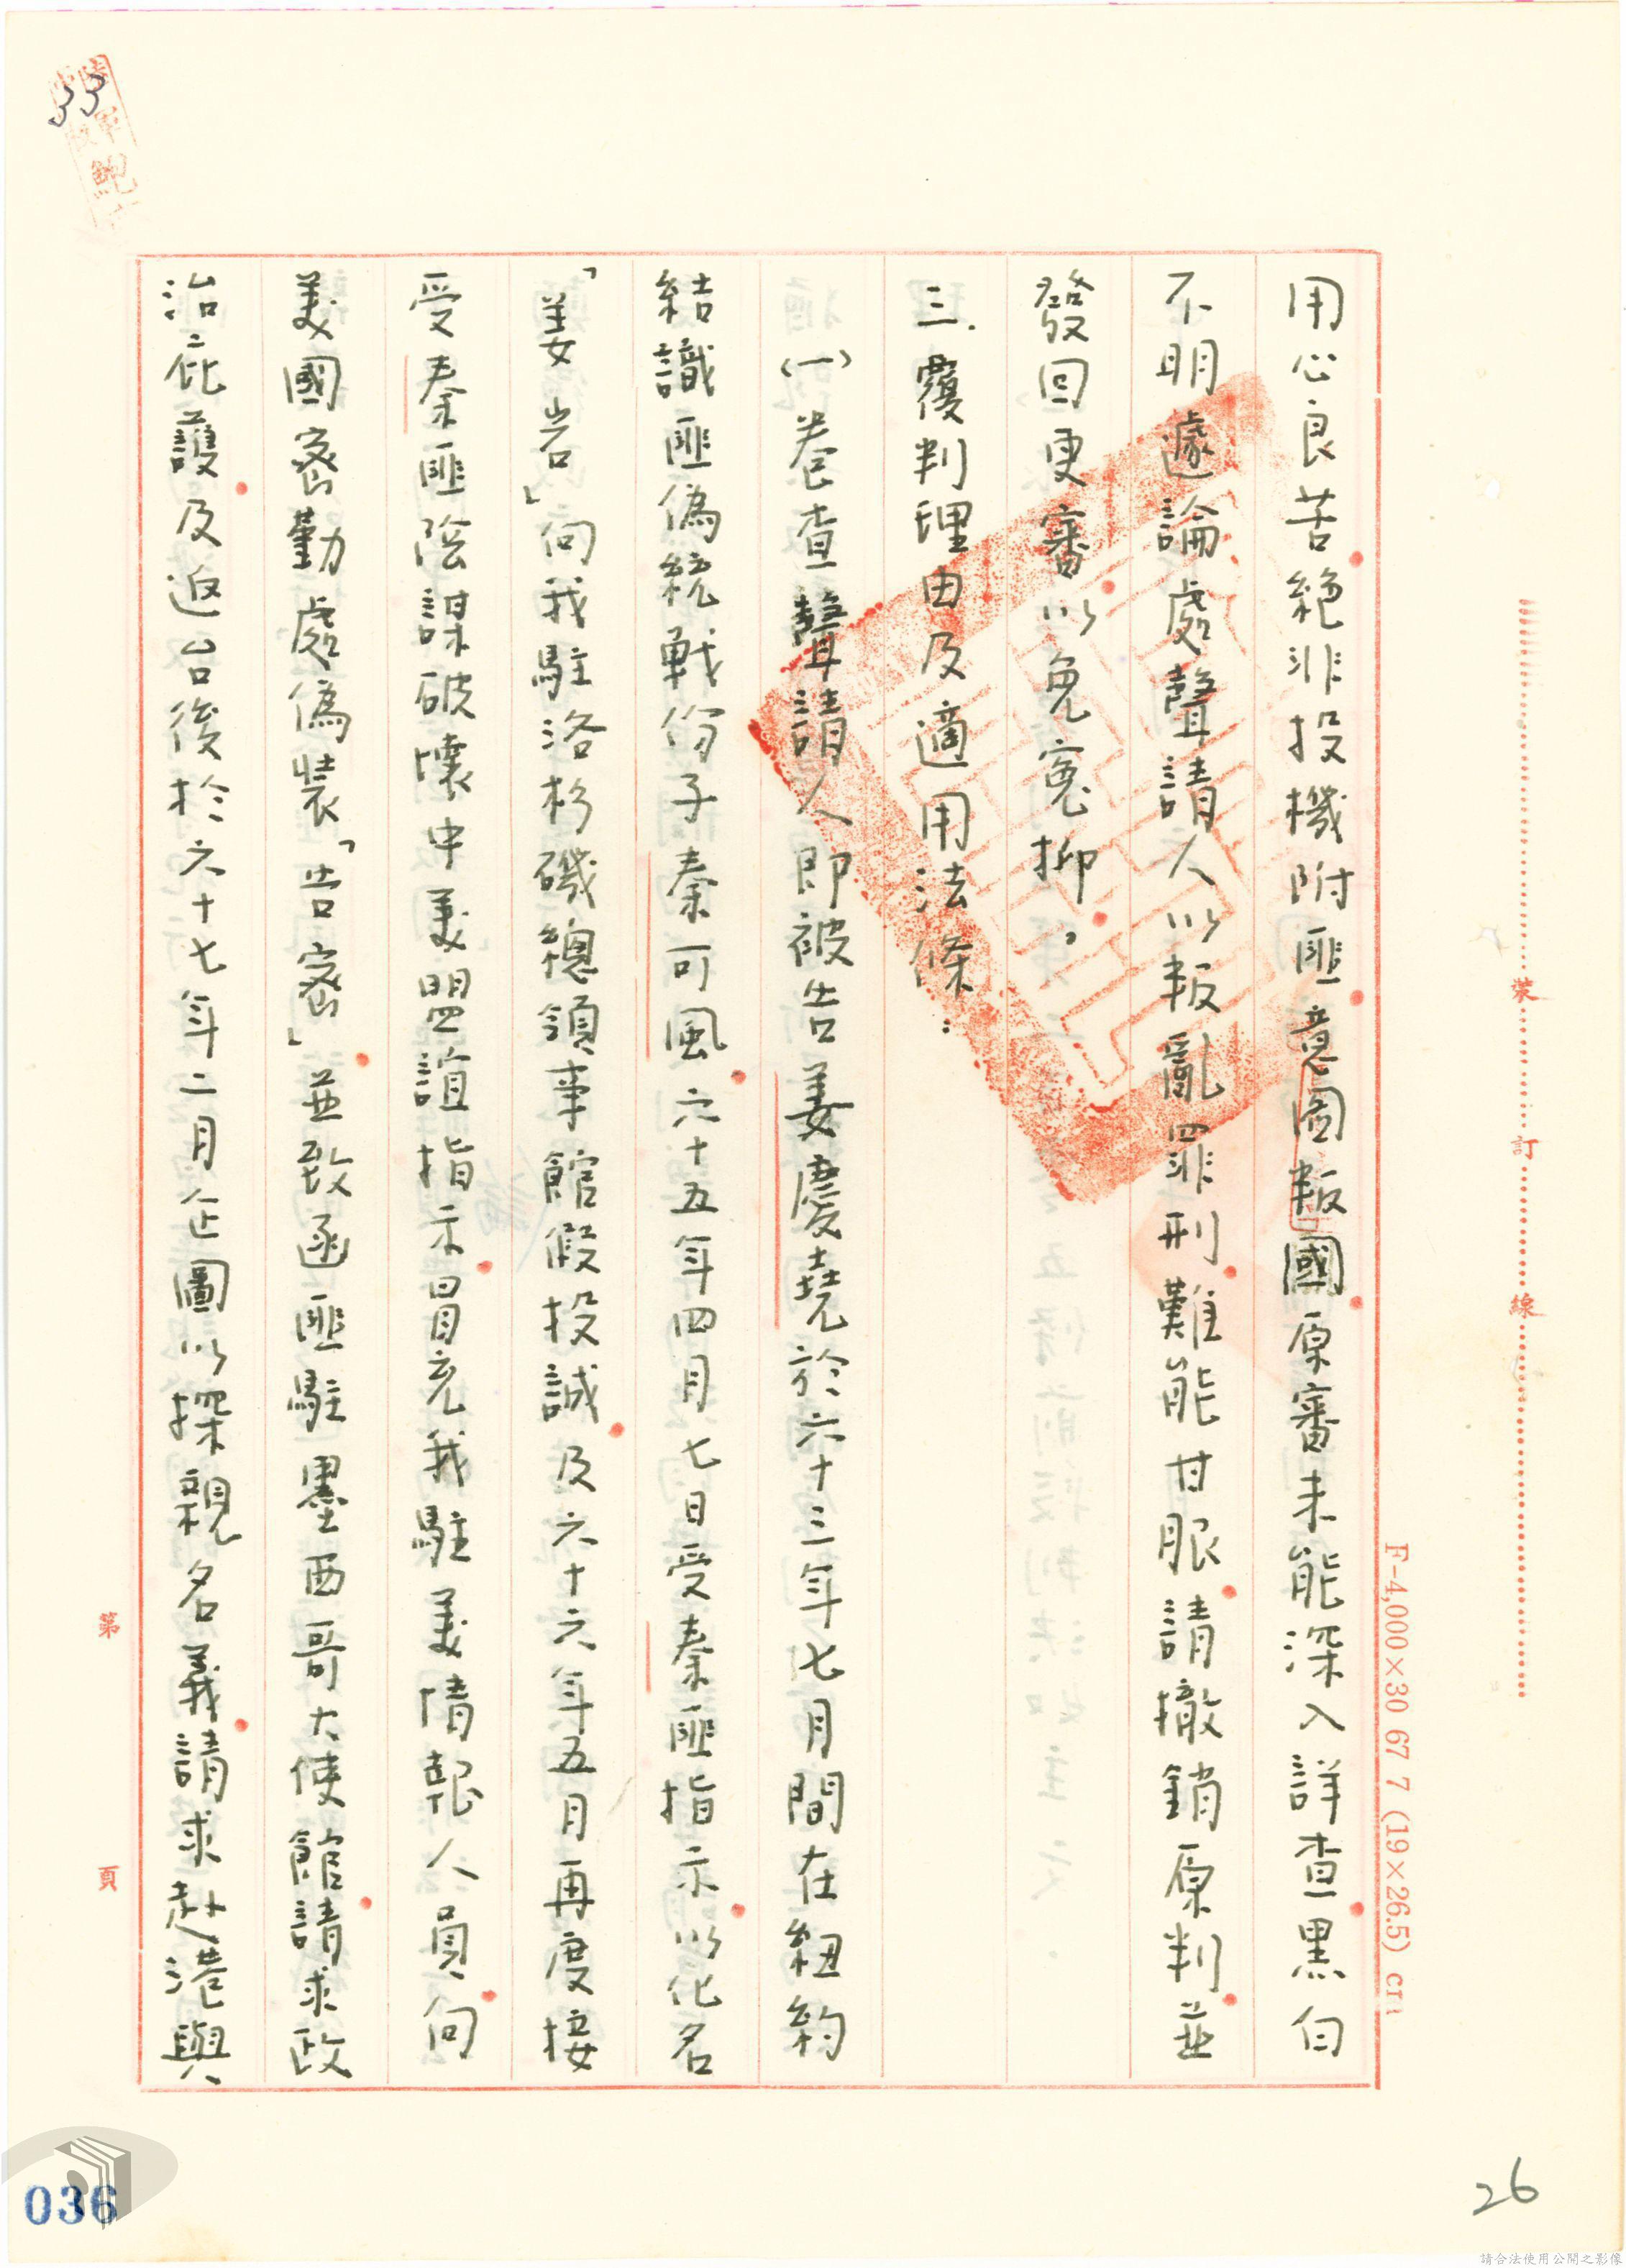 用心良苦絕非投機附匪意圖叛國原審未能深入詳查黑白
不明遽論處聲請人以叛亂罪刑難能甘服請撤銷原判並
發回更審以免寃抑。
三.覆判理由及適用法條：
(一)卷查聲請人即被告姜慶堯於六十三年七月間在紐約
結識匪偽統戰份子秦可風六十五年四月七日受秦匪指示以化名
「姜岩」向我駐洛杉磯總領事館假投誠及六十六年五月再度接
受秦匪陰謀破壞中美盟誼指示冒充我駐美情報人員向
美國密勤處偽裝「告密」並致函匪駐墨西哥大使館請求政
治庇護及返台後於六十七年二月企圖以探親名義請求赴港與
裝 訂 線
F-4,000×30 67 7 (19×26.5) cm
第 頁
33
26
036
請合法使用公開之影像